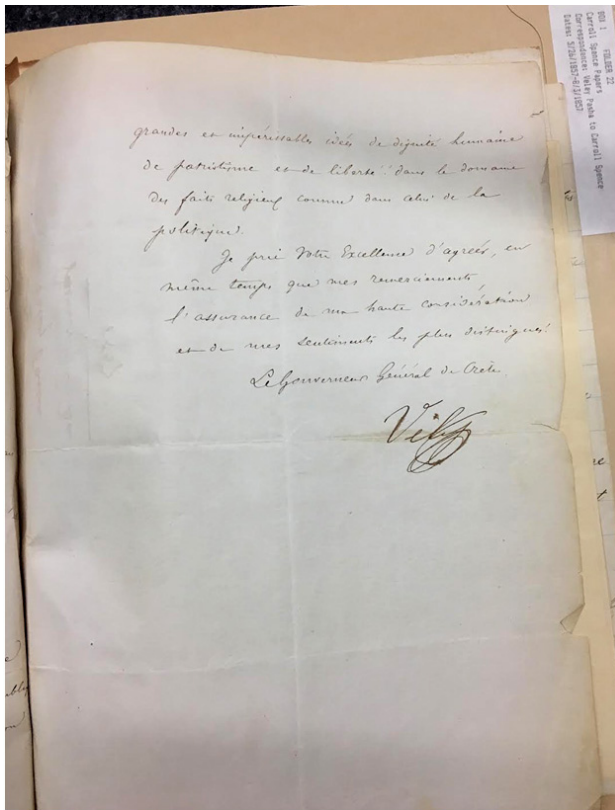 BOX 1 FOLDER 22
Carroll Spence Papers
Correspondence: Veley Pasha to Carroll Spence
grandes et impérissables idées de dignité humaine
de patriotisme et de liberté ! dans le domaine
des faits religieux comme dans celui de la
politique.
Je prie Votre Excellence d'agréer, en
même temps que mes remerciements,
l'assurance de ma haute considération
et de mes sentiments les plus distingués.
Le Gouverneur Général de Crète.
Vély